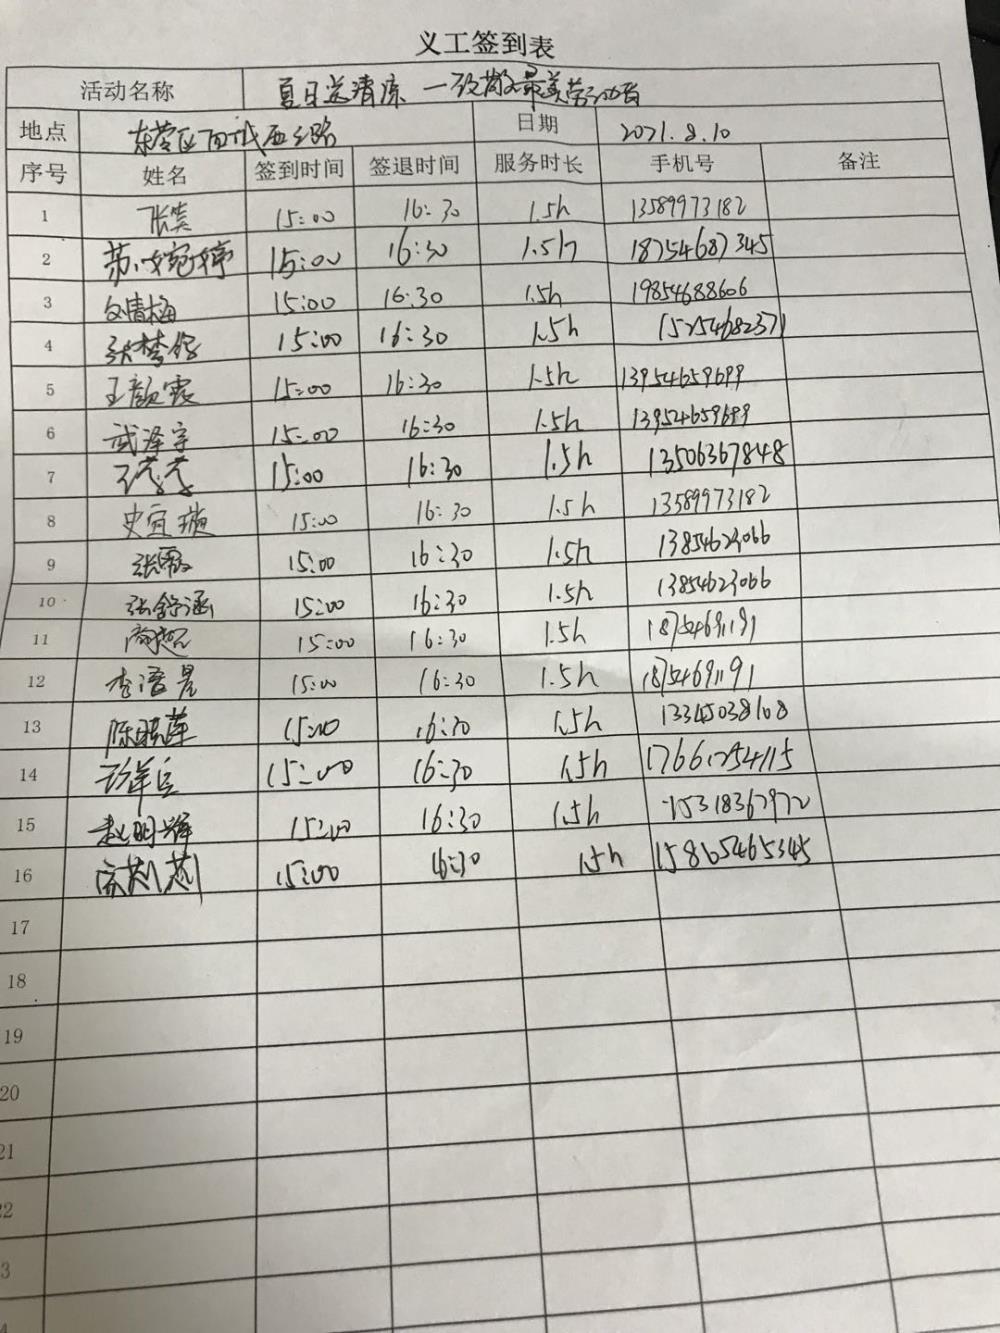 义工签到表
活动名称 夏日送清凉 一致敬最美劳动者
地点 东营区西城西二路 日期 2021.8.10
序号 姓名 签到时间 签退时间 服务时长 手机号 备注
1 15:00 16:30 1.5h 13589973182
2 苏婉婷 15:00 16:30 1.5h 18754687345
3 15:00 16:30 1.5h 19854688606
4 张梦 15:00 16:30 1.5h 15254682371
5 王颜霞 15:00 16:30 1.5h 13954659699
6 武泽宇 15:00 16:30 1.5h 13954659699
7 15:00 16:30 1.5h 13506367848
8 史宜璇 15:00 16:30 1.5h 13589973182
9 张霞 15:00 16:30 1.5h 13854623066
10 张舒涵 15:00 16:30 1.5h 13854623066
11 15:00 16:30 1.5h 18754691191
12 李语晨 15:00 16:30 1.5h 18754691191
13 陈晓莲 15:00 16:30 1.5h 13345038108
14 15:00 16:30 1.5h 17661254115
15 赵明辉 15:00 16:30 1.5h 15318367972
16 15:00 16:30 1.5h 15865465345
17
18
19
20
21
22
3